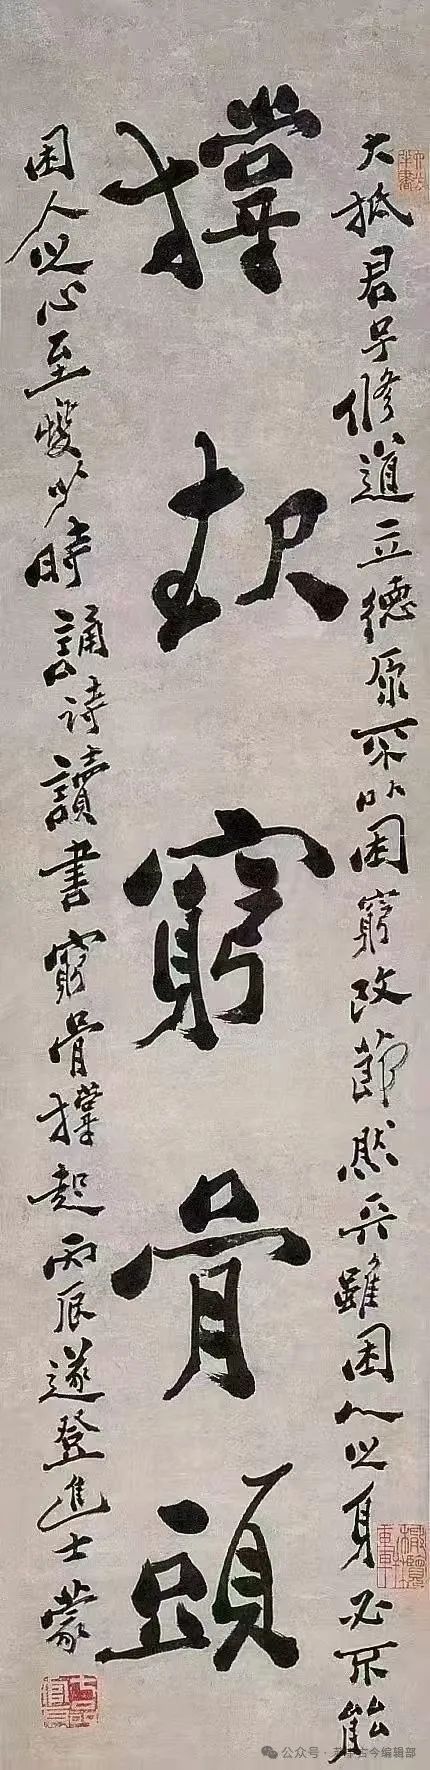 大抵君子修道立德原不以困窮改節然雖困人以身必不能
撐起窮骨頭
困人以心至少時誦詩讀書窮骨撐起丙辰遂登進士蒙
公众号·艺术古今编辑部